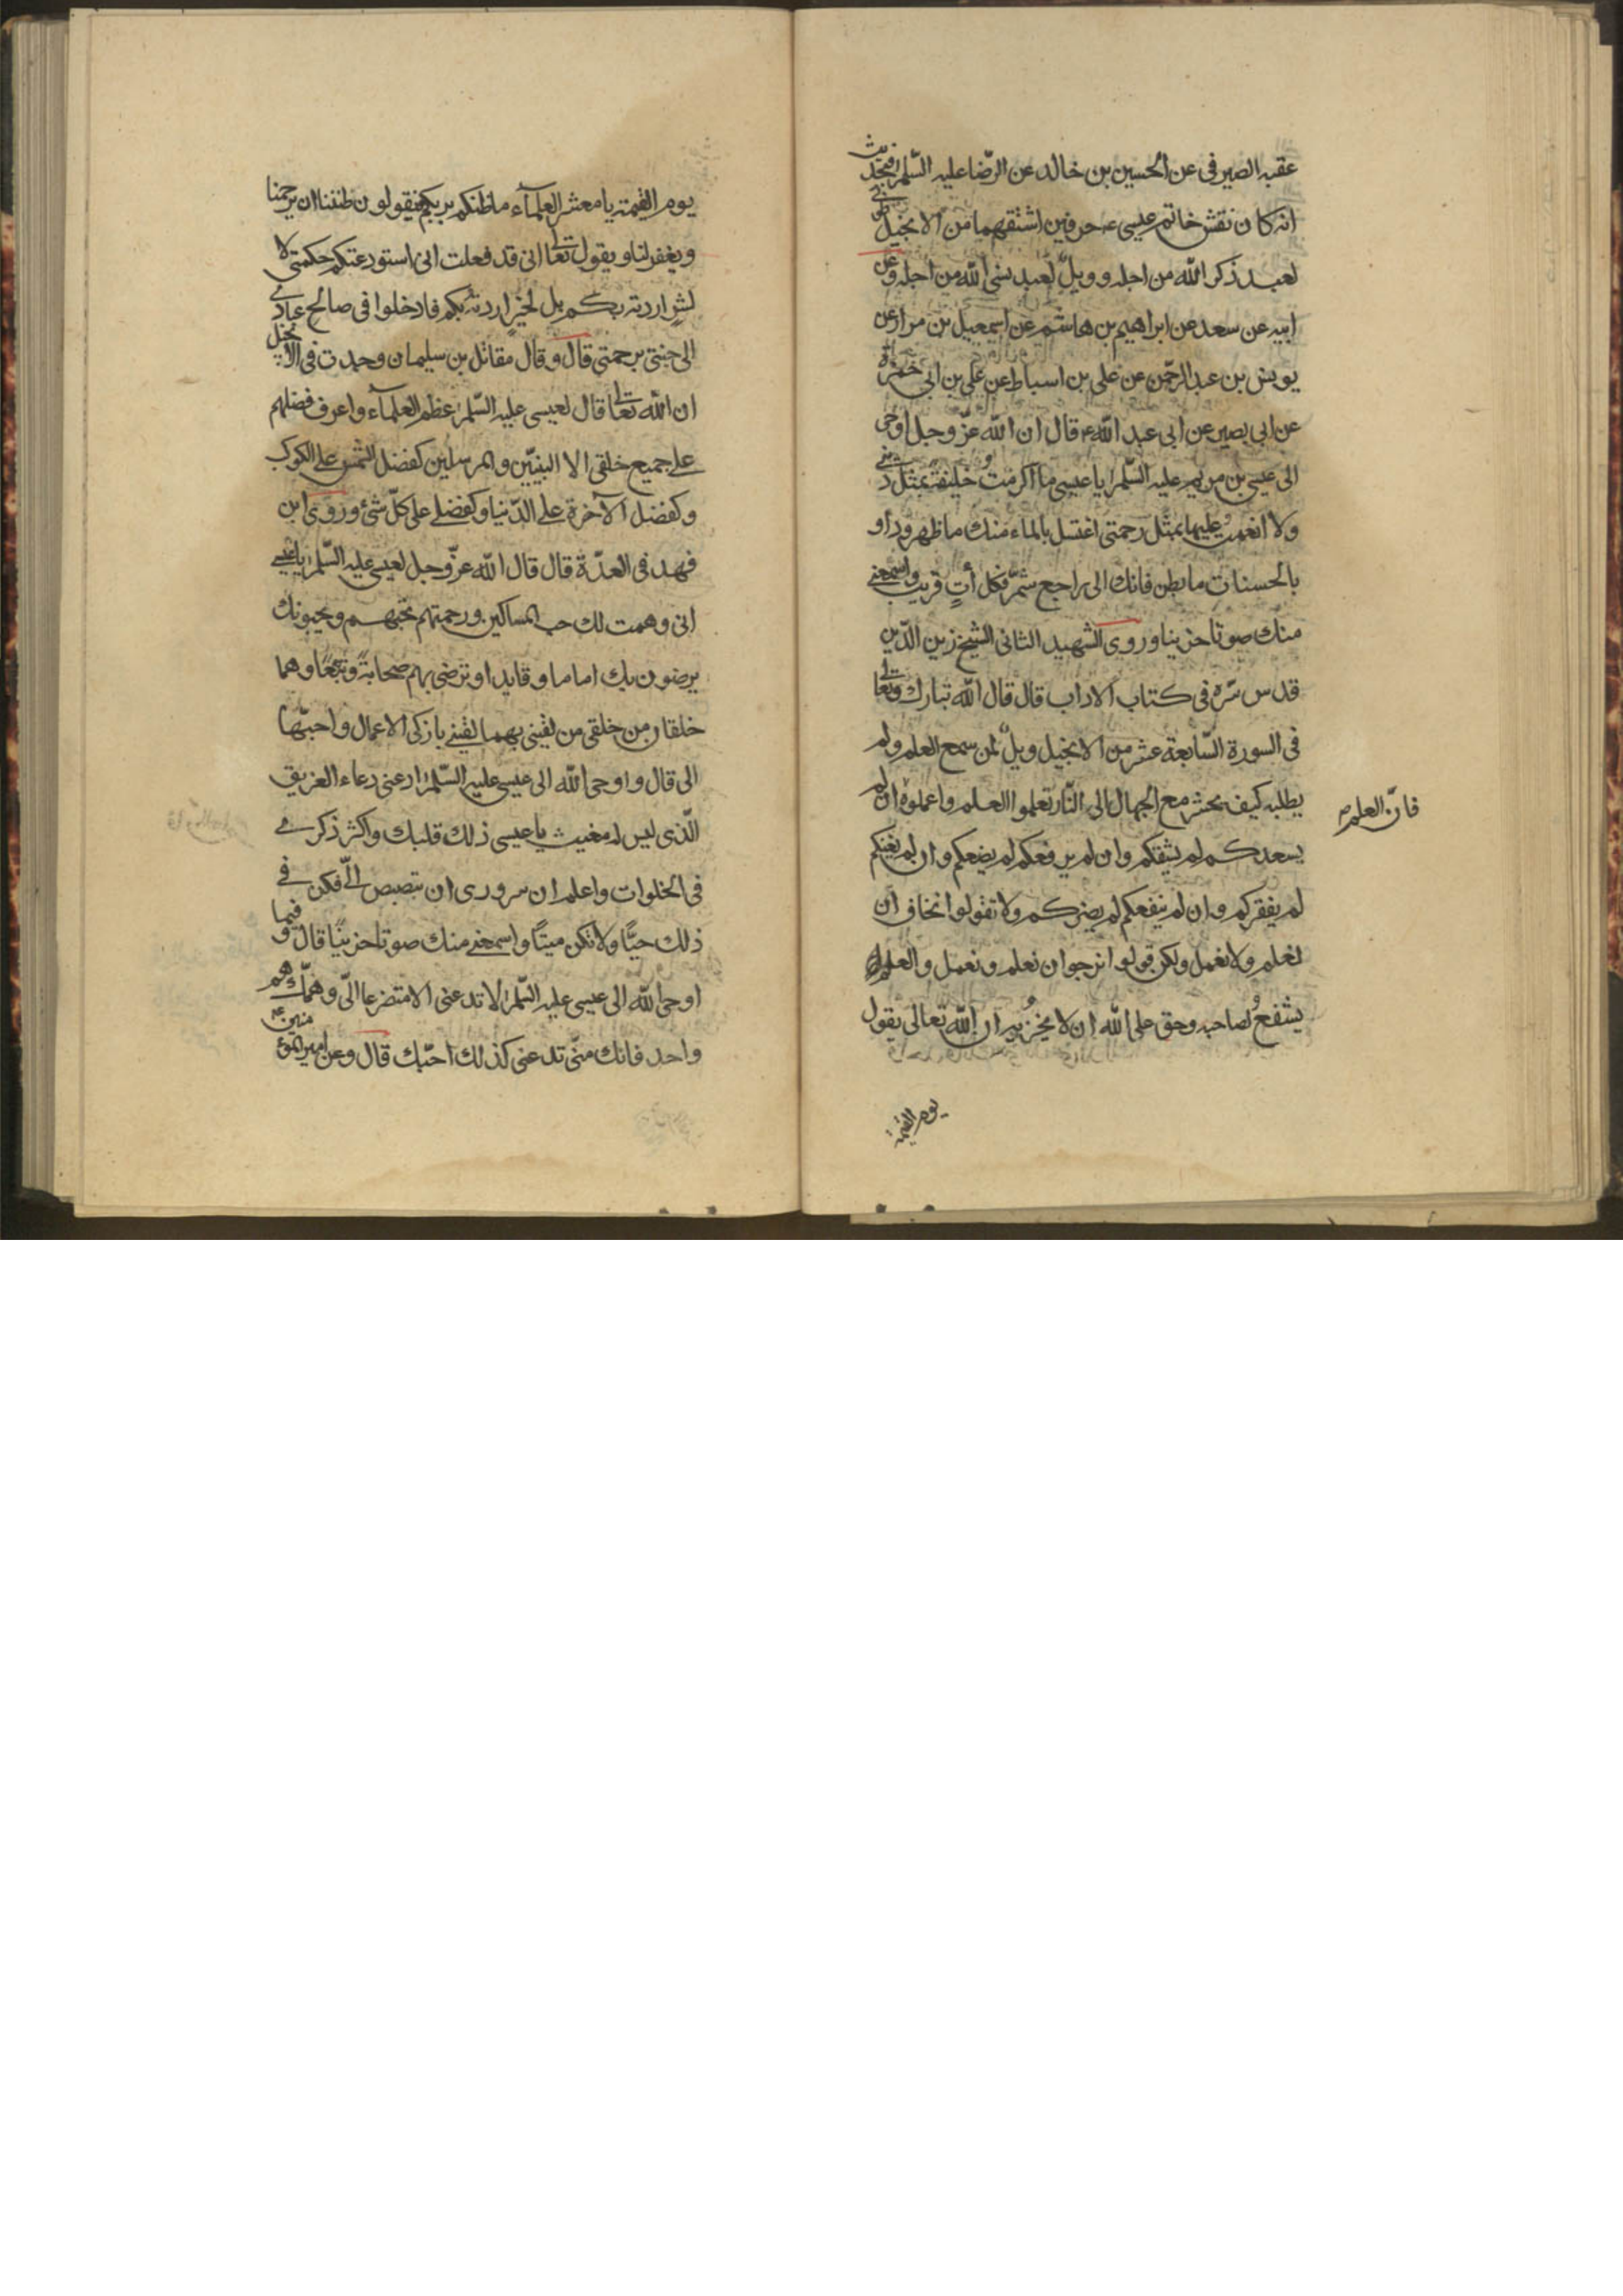 عقبه الصيرفى عن الحسين بن خالد عن الرّضا عليه السّلم فى حديث
انه كان نقش خاتم عيسى ع حرفين اشتقهما من الانجيل طوبى
لعبد ذكر الله من اجله وويلٌ لعبد نسى الله من اجله وعن
ابيه عن سعد عن ابراهيم بن هاشم عن اسمعيل بن مرار عن
يونس بن عبد الرحمن عن على بن اسباط عن على بن ابى حمزة
عن ابى بصير عن ابى عبد الله ع قال ان الله عزّ وجل اوحى
الى عيسى بن مريم عليه السّلم يا عيسى ما اكرمتُ خليقة بمثل دينى
ولا انعمت عليها بمثل رحمتى اغسل بالماء منك ما ظهر وداو
بالحسنات ما بطن فانك الى راجع شمّر فكل أتٍ قريب واسمعنى
منك صوتا حزينا وروى الشهيد الثانى الشيخ زين الدّين
قدس سّره فى كتاب الاداب قال قال الله تبارك وتعالى
فى السورة السّابعة عشر من الانجيل ويلٌ لمن سمع العلم ولم
يطلبه كيف يحشر مع الجهال الى النّار تعلموا العلم واعملوه ان لم
فانّ العلم صح
يسعدكم لم يشقكم وان لم يرفعكم لم يضعكم وان لم يغنكم
لم يفقركم وان لم ينفعكم لم يضركم ولا تقولوا نخاف ان
نعلم ولا نعمل ولكن قولوا نرجوا ان نعلم ونعمل والعلم
يشفعُ لصاحبه وحق على الله ان لا يخزيه ان الله تعالى يقول
يوم القيمة
يوم القيمة يا معشر العلمآء ما ظنكم بربكم فيقولون ظننا ان يرحمنا
ويغفر لنا ويقول تعالى انى قد فعلت انى استودعتكم حكمتى لا
لشرٍ اردته بكم بل لخيرٍ اردته بكم فادخلوا فى صالح عبادى
الى جنتى برحمتى قال وقال مقاتل بن سليمان وجدت فى الانجيل
ان الله تعالى قال لعيسى عليه السّلم عظم العلمآء واعرف فضلهم
على جميع خلقى الا النبيّين والمرسلين كفضل الشمس على الكوكب
وكفضل الآخرة على الدّنيا وكفضلى على كلّ شئ وروى ابن
فهد فى العدّة قال قال الله عزّ وجل لعيسى عليه السّلم يا عيسى
انى وهمت لك حب المساكين ورحمتهم تحبهم ويحبونك
يرضون بك اماما وقايدا وترضى بهم صحابةً وتبعًا وهما
خلقان من خلقى من لقينى بهما لقينى بازكى الاعمال واحبّها
الى قال واوحى الله الى عيسى عليه السّلم ادعنى دعاء الغريق
الّذى ليس له مغيث يا عيسى ذلك قلبك واكثر ذكرى
فى الخلوات واعلم ان سرورى ان تبصبص الىّ فكن فى
ذلك حيًّا ولا تكن ميتًا واسمعنى منك صوتا حزينًا قال وفيما
اوحى الله الى عيسى عليه السّلم لا تدعنى الا متضرعا الىّ وهمّك هم
واحد فانك متى تدعنى كذلك احبّك قال وعن امير المؤمنين ع